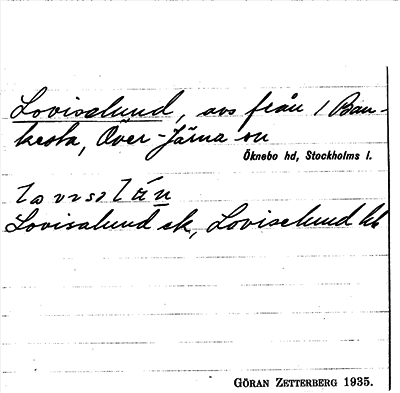 Loviselund, avs från 1 Ban-
kesta, Över-Järna sn
Öknebo hd, Stockholms l.
Lovisalund sk, Loviselund kb
GÖRAN ZETTERBERG 1935.